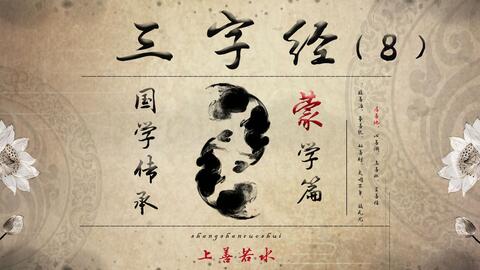 三字经（8）
国学传承
蒙学篇
居善地
shangshanruoshui
上善若水